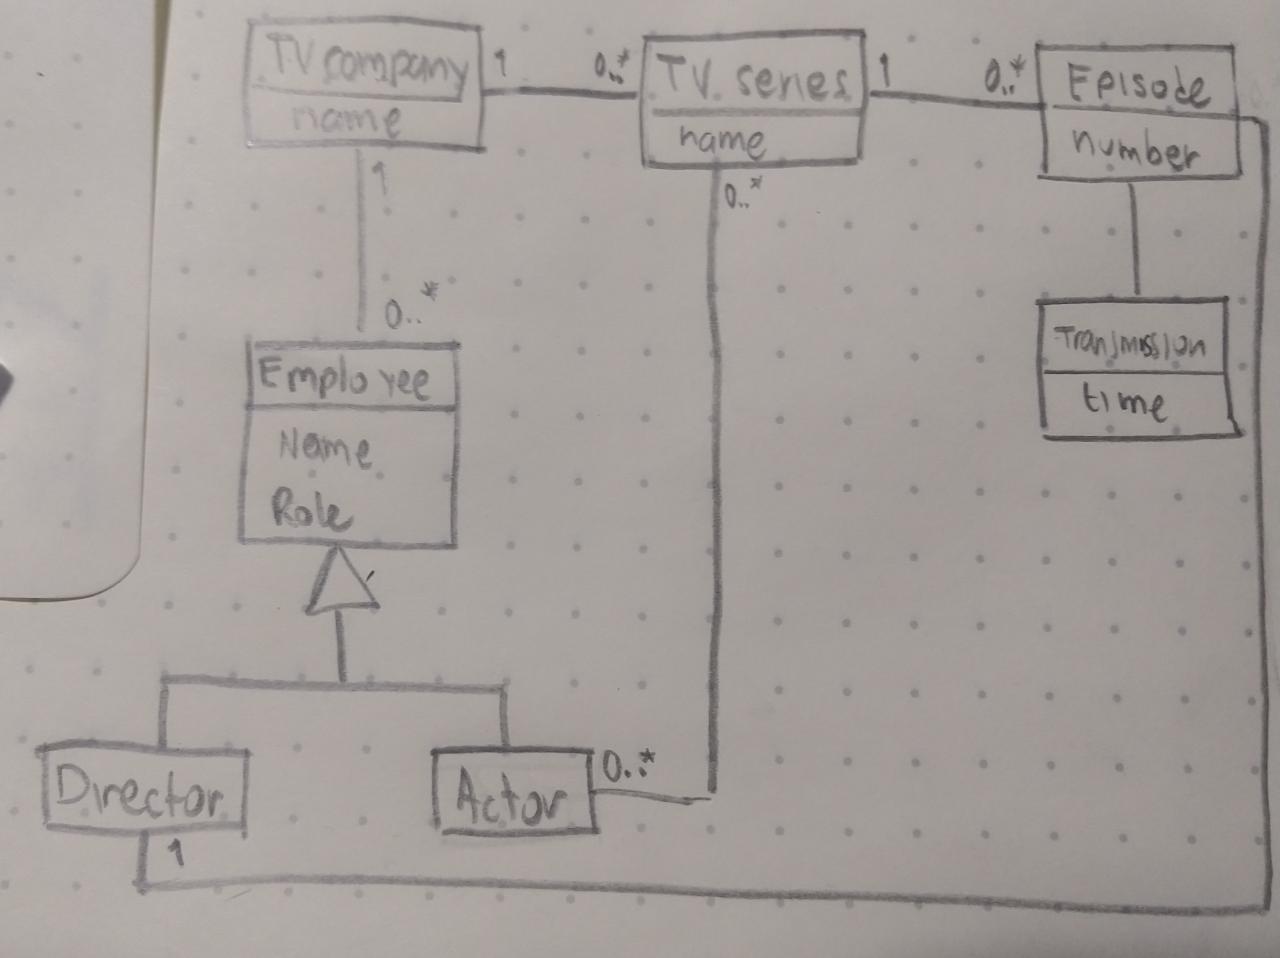 TV company
name
1
0..*
TV series
name
1
0..*
Episode
number
1
0..*
0..*
Transmission
time
Employee
Name
Role
Director
1
Actor
0..*